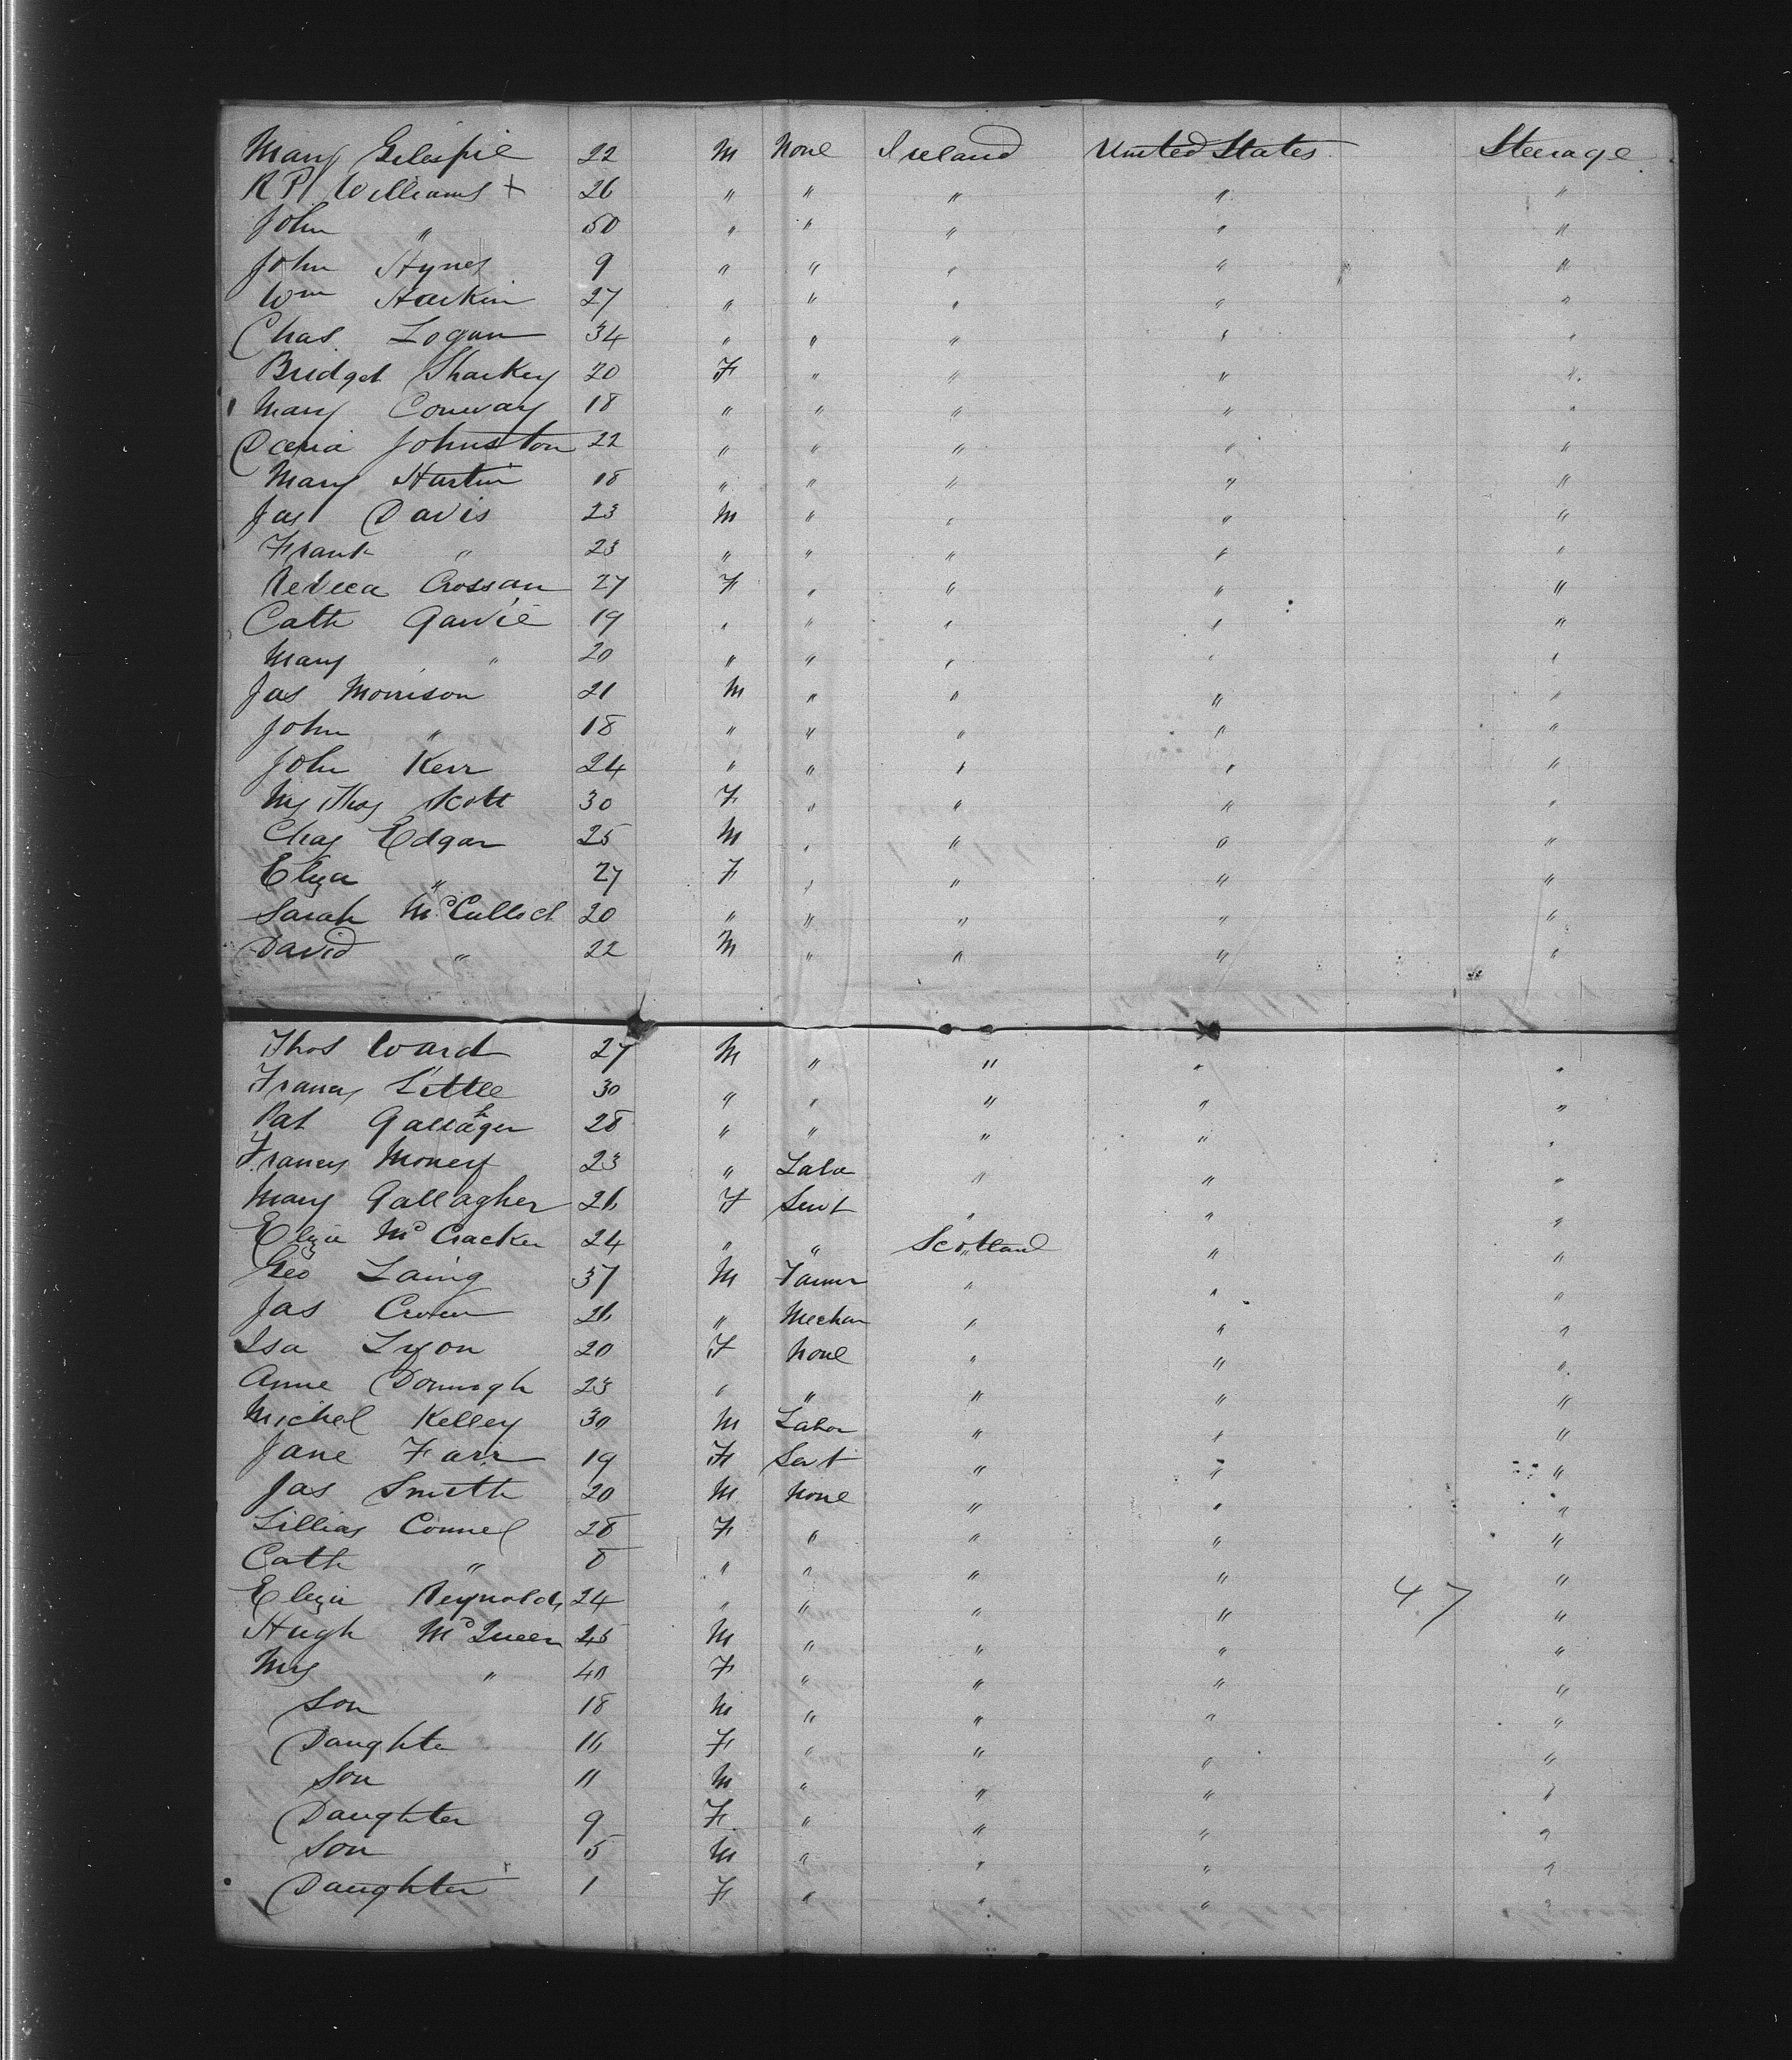 Mary Gilespie 22 M None Ireland United States Steerage
R P Williams + 26 " " " " "
John " 50 " " " " "
John Hynes 9 " " " " "
Wm Harkin 27 " " " " "
Chas. Logan 34 " " " " "
Bridget Sharkey 20 F " " " "
Mary Conway 18 " " " " "
Johnston 22 " " " " "
Mary Hartin 18 " " " " "
Jas Davis 23 M " " " "
Frank " 23 " " " " "
Rebeca Crossan 27 F " " " "
Cath Garvie 19 " " " " "
Mary " 20 " " " " "
Jas Morrison 21 M " " " "
John " 18 " " " " "
John Kerr 24 " " " " "
Mrs Thos Scott 30 F " " " "
Chas Edgar 25 M " " " "
Eliza " 27 F " " " "
Sarah McCulloch 20 " " " " "
David " 22 M " " " "
Thos Ward 27 M " " " "
Francis Little 30 " " " " "
Pat Gallagher 28 " " " " "
Francis Money 23 " Labor " " "
Mary Gallagher 26 F Servt " " "
Eliza McCracken 24 " " Scotland " "
Geo Laing 37 M Farmer " " "
Jas 26 " Mechan " " "
Isa Lyon 20 F None " " "
Anne Donnogh 23 " " " " "
Michel Kelley 30 M Labor " " "
Jane Farr 19 F Servt " " "
Jas Smith 20 M None " " "
Lillias Connel 28 F " " " "
Cath " 8 " " " " "
Eliza Reynolds 24 " " " " 47 "
Hugh McQueen 45 M " " " "
Mrs " 40 F " " " "
Son 18 M " " " "
Daughter 16 F " " " "
Son 11 M " " " "
Daughter 9 F " " " "
Son 5 M " " " "
Daughter 1 F " " " "